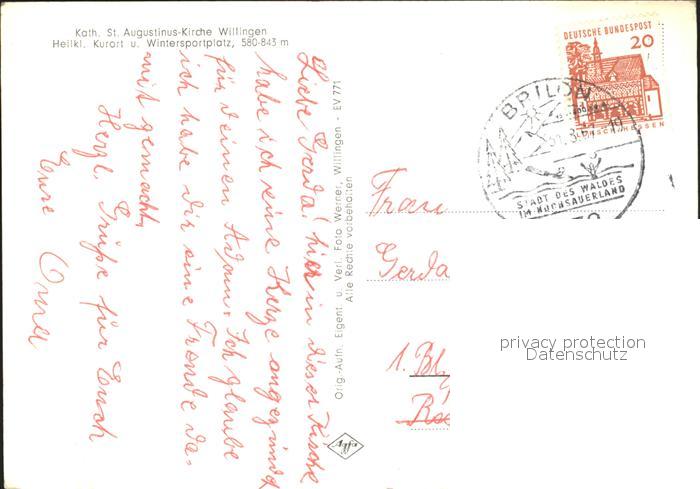 Kath. St. Augustinus-Kirche Willingen
Heilkl. Kurort u. Wintersportplatz, 580-843 m
Liebe Gerda! hier in dieser Kirche
habe ich eine Kerze angezündet
für deinen Adam. Ich glaube
ich habe dir eine Freude da-
mit gemacht.
Herzl. Grüße für Euch
Eure
Orig.-Aufn. Eigent. u. Verl. Foto Werner, Willingen - EV 771
Alle Rechte vorbehalten
Agfa
DEUTSCHE BUNDESPOST
20
BRILON
STADT DES WALDES
IM HOCHSAUERLAND
Frau
Gerda
1. Bl
privacy protection
Datenschutz